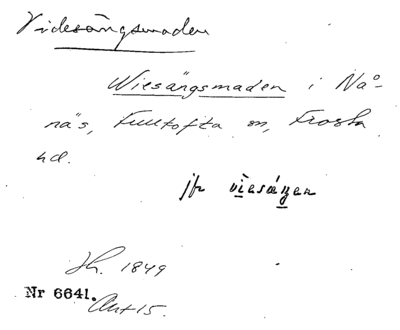 Videsångsmaden
Wiesängsmaden i Nå-
näs, Fulltofta sn, Frosta
hd.
jfr viesángen
Sk. 1849
Nr 6641.
Akt 15.